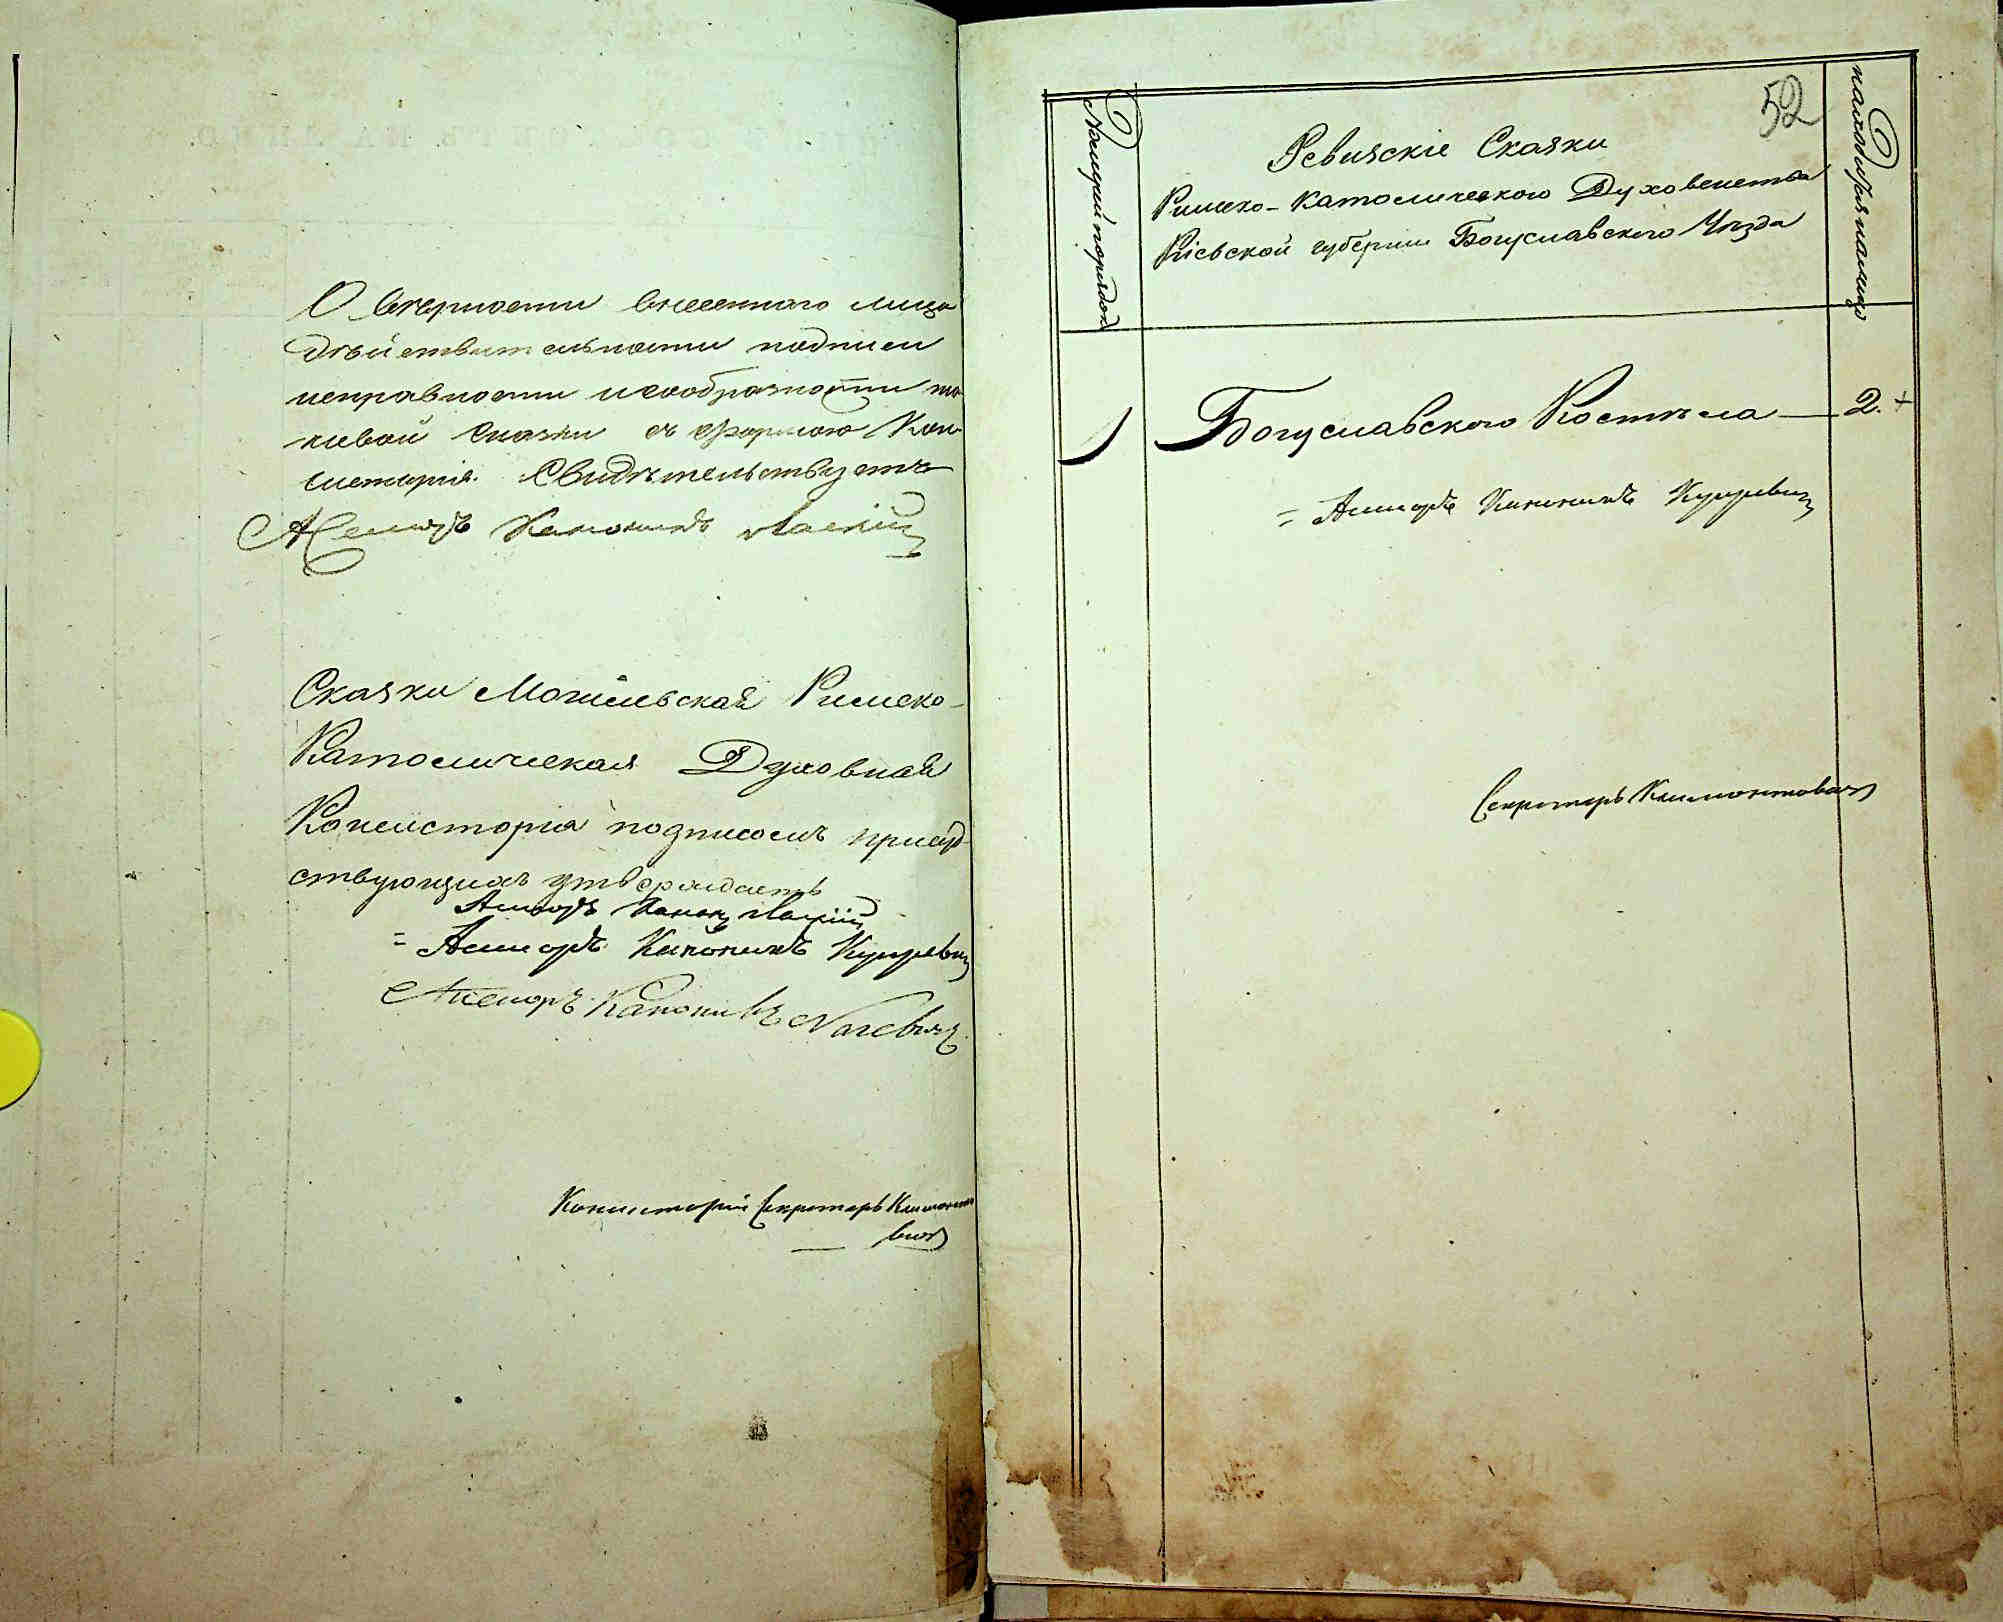 О вѣрности внесеннаго лица
дѣйствительности подписи
исправности и сообразности та-
ковой сказки съ формою Кон-
систорія. Свидѣтельствуетъ
Асесоръ Каноникъ
Сказки Могилевская Римско-
Католическая Духовная
Консисторія подписомъ присуд-
ствующихъ утверждаетъ
Асесоръ Канон
Ассесоръ Каноникъ
Ассесоръ Каноникъ
Консисторіи Секретарь Климонто-
вичъ
52
порядок
Ревизскіе Сказки
Римско-Католическаго Духовенства
Кіевской губерніи Богуславского Уѣзда
1 Богуславского Костѣла — 2. +
= Ассесоръ Каноникъ
Секретарь Климонтовичъ